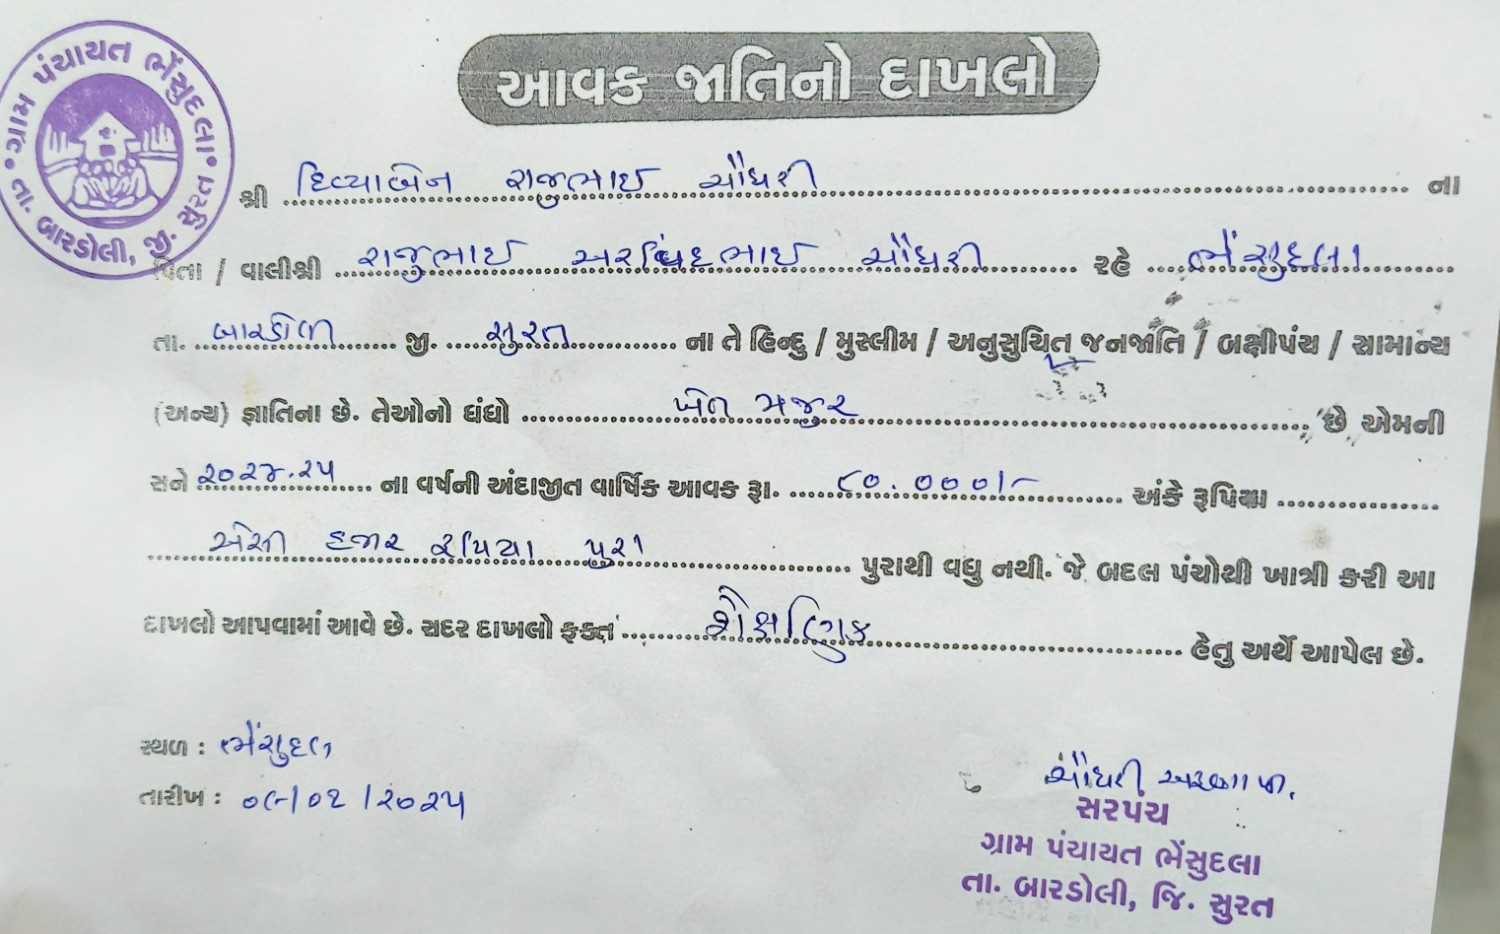 ગ્રામ પંચાયત ભેંસુદલા
તા. બારડોલી, જી. સુરત
આવક જાતિનો દાખલો
શ્રી દિવ્યાબેન રાજુભાઈ ચૌધરી ના
પિતા / વાલીશ્રી રાજુભાઈ અરવિંદભાઈ ચૌધરી રહે ભેંસુદલા
તા. બારડોલી જી. સુરત ના તે હિન્દુ / મુસ્લીમ / અનુસુચિત જનજાતિ / બક્ષીપંચ / સામાન્ય
(અન્ય) જ્ઞાતિના છે. તેઓનો ધંધો ખેત મજુર છે એમની
સને ૨૦૨૪.૨૫ ના વર્ષની અંદાજીત વાર્ષિક આવક રૂા. ૮૦.૦૦૦/- અંકે રૂપિયા
એંસી હજાર રૂપિયા પુરા પુરાથી વધુ નથી. જે બદલ પંચોથી ખાત્રી કરી આ
દાખલો આપવામાં આવે છે. સદર દાખલો ફક્ત શૈક્ષણિક હેતુ અર્થે આપેલ છે.
સ્થળ : ભેંસુદલા
તારીખ : ૦૯/૦૨/૨૦૨૫
ચૌધરી
સરપંચ
ગ્રામ પંચાયત ભેંસુદલા
તા. બારડોલી, જિ. સુરત